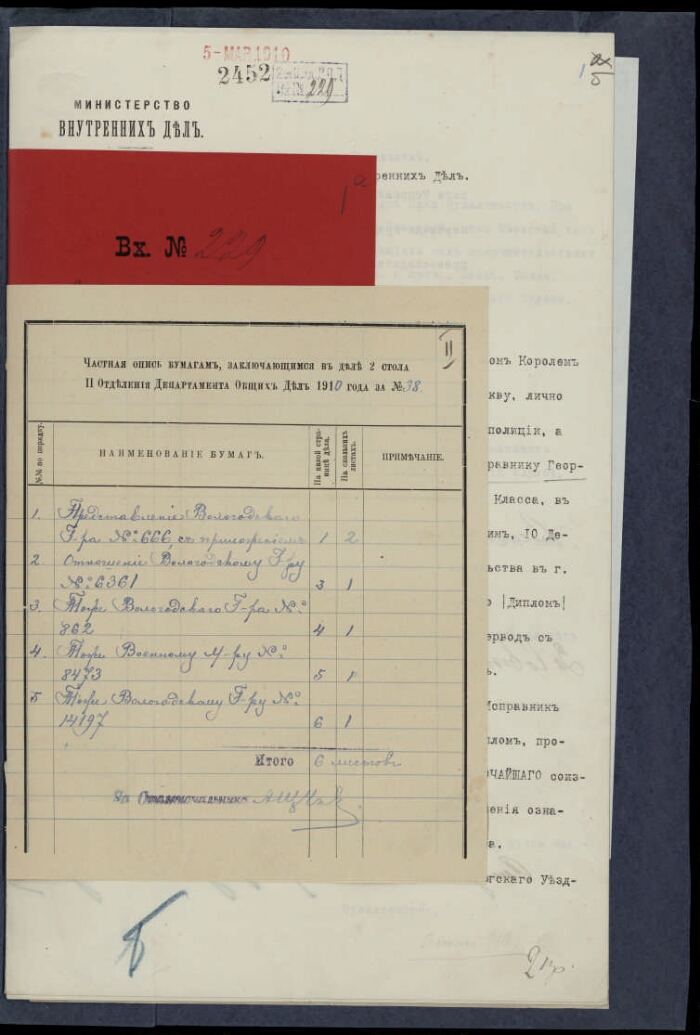 5-МАР.1910
2452
229
1
МИНИСТЕРСТВО
ВНУТРЕННИХЪ ДѢЛЪ.
реннихъ Дѣлъ.
1а
Вх. № 229
II
Частная опись бумагамъ, заключающимся въ дѣлѣ 2 стола
II Отдѣленія Департамента Общихъ Дѣлъ 1910 года за № 38.
№№ по порядку.
НАИМЕНОВАНІЕ БУМАГЪ.
На какой страницѣ дѣла.
На сколькихъ листахъ.
ПРИМѢЧАНІЕ.
1. Представленіе Вологодскаго
Г-ра № 666, съ приложеніемъ 1 2
2. Отношеніе Вологодскому Г-ру
№ 6361 3 1
3. Тоже Вологодскаго Г-ра №
862 4 1
4. Тоже Военному М-ру №
8473 5 1
5 Тоже Вологодскому Г-ру №
14197 6 1
Итого 6 листовъ
За
омъ Королемъ
кву, лично
полиціи, а
равнику Геор-
Класса, въ
ин, 10 Де-
ьства въ г.
о |Дипломъ|
ереводъ съ
ъ.
Исправник
ломъ, про-
ОЧАЙШАГО соиз-
ленія озна-
а.
гскаго Уѣзд-